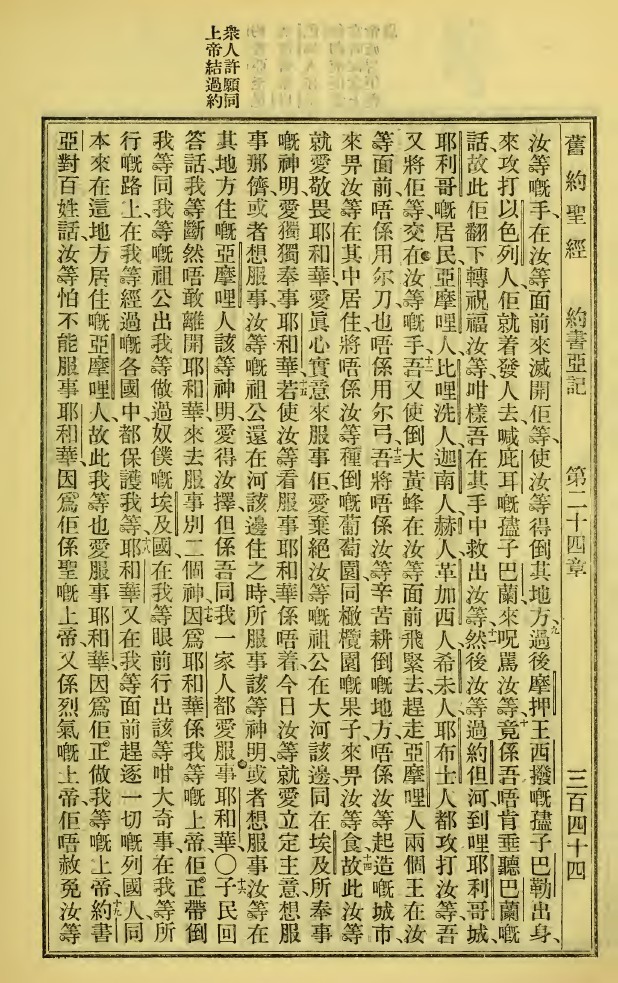 衆人許願同
上帝結過約
舊約聖經 約書亞記 第二十四章 三百四十四
汝等嘅手、在汝等面前來滅開佢等、使汝等得倒其地方、九過後摩押王西撥嘅孻子巴勒出身、
來攻打以色列人、佢就着發人去喊庇耳嘅孻子巴蘭、來呪罵汝等、十竟係吾唔肯垂聽巴蘭嘅
話、故此佢翻下轉祝福汝等、咁樣吾在其手中救出汝等、十一然後汝等過約但河、到哩耶利哥城、
耶利哥嘅居民、亞摩哩人、比哩洗人、迦南人、赫人、革加西人、希未人、耶布士人、都攻打汝等、吾
又將佢等交在汝等嘅手、十二吾又使倒大黃蜂在汝等面前飛緊去、趕走亞摩哩人兩個王在汝
等面前、唔係用尔刀、也唔係用尔弓、十三吾將唔係汝等辛苦耕倒嘅地方、唔係汝等起造嘅城市、
來畀汝等在其中居住、將唔係汝等種倒嘅葡萄園同橄欖園嘅果子、來畀汝等食、十四故此汝等
就愛敬畏耶和華、愛眞心實意來服事佢、愛棄絕汝等嘅祖公在大河該邊、同在埃及、所奉事
嘅神明、愛獨獨奉事耶和華、十五若使汝等看服事耶和華係唔着、今日汝等就愛立定主意想服
事那儕、或者想服事汝等嘅祖公還在河該邊住之時所服事該等神明、或者想服事汝等在
其地方住嘅亞摩哩人該等神明、愛得汝擇、但係吾同我一家人都愛服事耶和華〇十六子民回
答話、我等斷然唔敢離開耶和華、來去服事別二個神、十七因爲耶和華係我等嘅上帝、佢正帶倒
我等同我等嘅祖公出我等做過奴僕嘅埃及國、在我等眼前行出該等咁大奇事、在我等所
行嘅路上、在我等經過嘅各國中、都保護我等、十八耶和華又在我等面前趕逐一切嘅列國人、同
本來在這地方居住嘅亞摩哩人、故此我等也愛服事耶和華、因爲佢正做我等嘅上帝、十九約書
亞對百姓話、汝等怕不能服事耶和華、因爲佢係聖嘅上帝、又係烈氣嘅上帝、佢唔赦免汝等